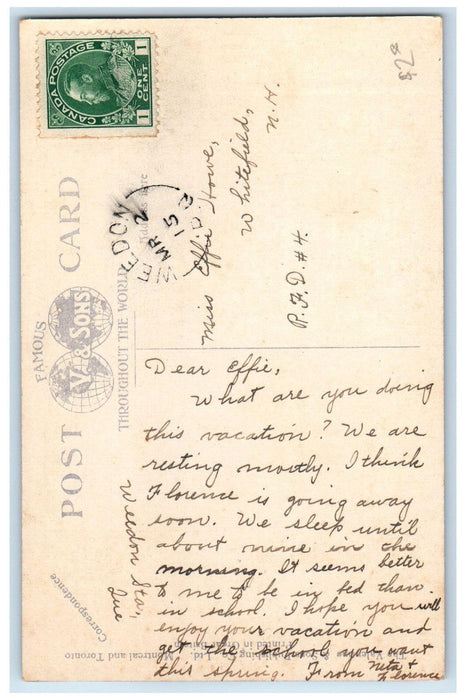 CANADA POSTAGE
1 ONE CENT 1
$2
WEEDON
MR 2
15
P Q
POST CARD
Address here
FAMOUS
V. & SONS
THROUGHOUT THE WORLD
Miss Effie Howe,
Whitefield,
N.H.
R.F.D. #4.
Correspondence
Weedon Sta,
Que
Dear Effie,
What are you doing
this vacation? We are
resting mostly. I think
Florence is going away
soon. We sleep until
about nine in the
morning. It seems better
to me to be in bed than
in school. I hope you will
enjoy your vacation and
get the school you want
this spring. From Neta &
Florence
Montreal and Toronto
Printed in